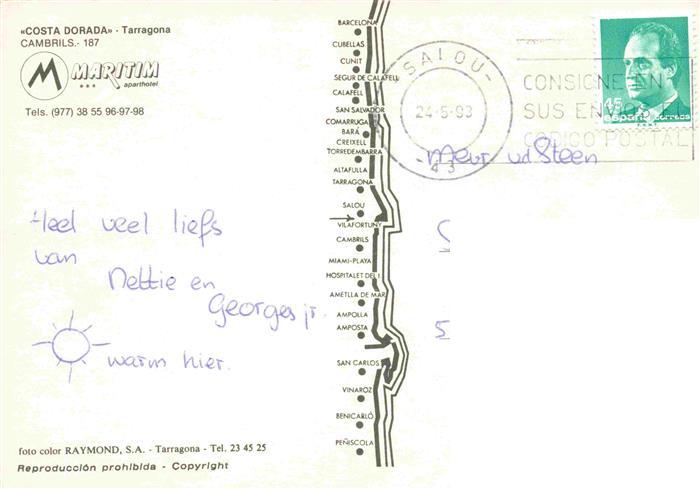 «COSTA DORADA» - Tarragona
CAMBRILS.- 187
M MARITIM
aparthotel
Tels. (977) 38 55 96-97-98
Heel veel liefs
van
Nettie en
Georges jr.
warm hier.
foto color RAYMOND, S.A. - Tarragona - Tel. 23 45 25
Reproducción prohibida - Copyright
BARCELONA
CUBELLAS
CUNIT
SEGUR DE CALAFELL
CALAFELL
SAN SALVADOR
COMARRUGA
BARÁ
CREIXELL
TORREDEMBARRA
ALTAFULLA
TARRAGONA
SALOU
VILAFORTUNY
CAMBRILS
MIAMI-PLAYA
HOSPITALET DEL I.
AMETLLA DE MAR
AMPOLLA
AMPOSTA
SAN CARLOS
VINAROZ
BENICARLÓ
PEÑISCOLA
SALOU
24-5-93
43
CONSIGNE EN
SUS ENVIOS EL
CODIGO POSTAL
45
españa correos
Mevr. vd Steen
5